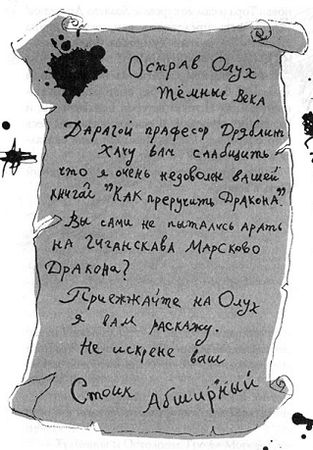 Острав Олух
Тёмные Века
Дарагой прафесор Дряблинг
Хачу вам саабщить
что я очень недоволен вашей
книгай "Как преручить Дракона".
Вы сами не пытались арать
на Гиганскава Марсково
Дракона?
Приежжайте на Олух
я вам раскажу.
Не искрене ваш
Стоик Абширный